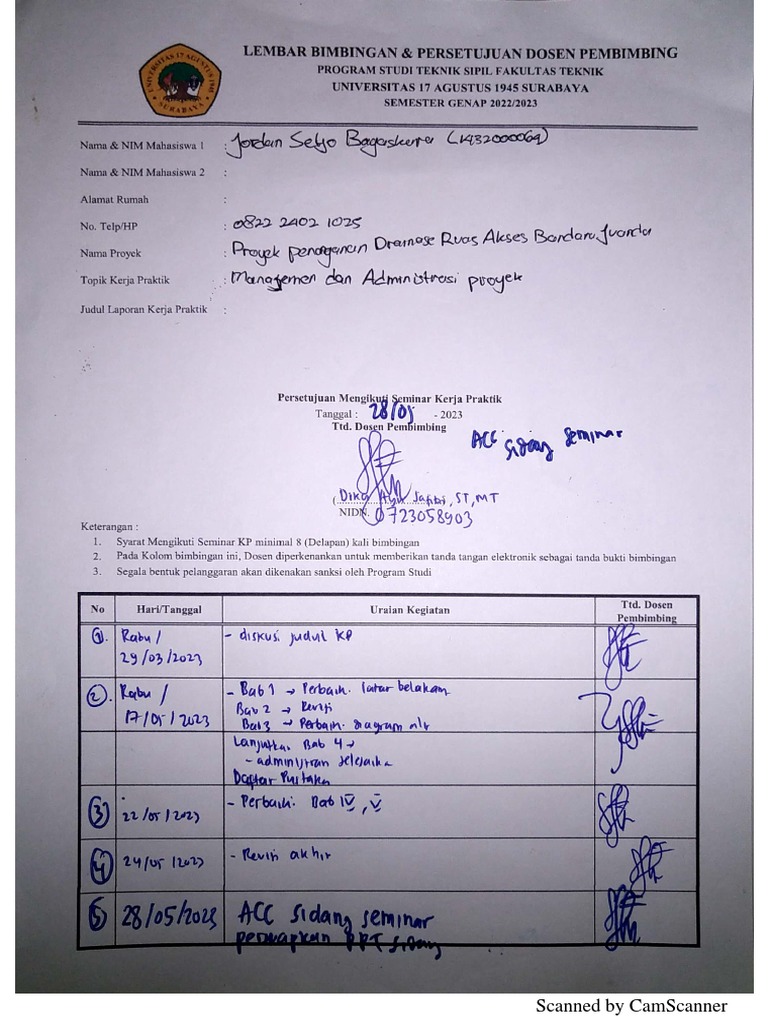 LEMBAR BIMBINGAN & PERSETUJUAN DOSEN PEMBIMBING
PROGRAM STUDI TEKNIK SIPIL FAKULTAS TEKNIK
UNIVERSITAS 17 AGUSTUS 1945 SURABAYA
SEMESTER GENAP 2022/2023
UNIVERSITAS 17 AGUSTUS 1945
SURABAYA
Nama & NIM Mahasiswa 1 : Jordan Setyo Bagaskara (1432000069)
Nama & NIM Mahasiswa 2 :
Alamat Rumah :
No. Telp/HP : 0822 2402 1025
Nama Proyek : Proyek penanganan Drainase Ruas Akses Bandara Juanda
Topik Kerja Praktik : Manajemen dan Administrasi proyek
Judul Laporan Kerja Praktik :
Persetujuan Mengikuti Seminar Kerja Praktik
Tanggal : 28/05 - 2023
Ttd. Dosen Pembimbing
ACC sidang seminar
(Dika Ayu Safitri, ST, MT
NIDN. 0723058903
Keterangan :
1. Syarat Mengikuti Seminar KP minimal 8 (Delapan) kali bimbingan
2. Pada Kolom bimbingan ini, Dosen diperkenankan untuk memberikan tanda tangan elektronik sebagai tanda bukti bimbingan
3. Segala bentuk pelanggaran akan dikenakan sanksi oleh Program Studi
No Hari/Tanggal Uraian Kegiatan Ttd. Dosen Pembimbing
1. Rabu / 29/03/2023 - diskusi judul KP
2. Rabu / 17/05/2023 - Bab 1 → Perbaiki latar belakang
Bab 2 → Revisi
Bab 3 → Perbaiki diagram alir
Lanjutkan Bab 4 →
- administrasi
Daftar Pustaka
3 22/05/2023 - Perbaiki Bab IV, V
4 24/05/2023 - Revisi akhir
5 28/05/2023 ACC sidang seminar
persiapkan PPT sidang
Scanned by CamScanner